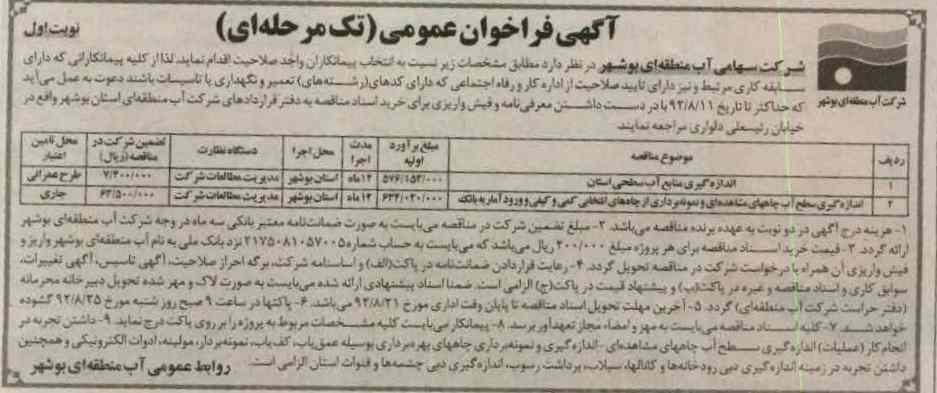 آگهی فراخوان عمومی (تک مرحله‌ای)
نوبت اول
شرکت آب منطقه‌ای بوشهر
شرکت سهامی آب منطقه‌ای بوشهر در نظر دارد مطابق مشخصات زیر نسبت به انتخاب پیمانکاران واجد صلاحیت اقدام نماید. لذا از کلیه پیمانکارانی که دارای
سابقه کاری مرتبط و نیز دارای تایید صلاحیت از اداره کار و رفاه اجتماعی که دارای کدهای (رشته‌های) تعمیر و نگهداری یا تاسیسات باشند دعوت به عمل می‌آید
که حداکثر تا تاریخ ۹۲/۸/۱۱ با در دست داشتن معرفی‌نامه و فیش واریزی برای خرید اسناد مناقصه به دفتر قراردادهای شرکت آب منطقه‌ای استان بوشهر واقع در
خیابان رئیسعلی دلواری مراجعه نمایند.
ردیف موضوع مناقصه مبلغ برآورد اولیه مدت اجرا محل اجرا دستگاه نظارت تضمین شرکت در مناقصه (ریال) محل تامین اعتبار
۱ اندازه‌گیری منابع آب سطحی استان ۵۷۶/۱۵۲/۰۰۰ ۱۲ماه استان بوشهر مدیریت مطالعات شرکت ۷/۲۰۰/۰۰۰ طرح عمرانی
۲ اندازه‌گیری سطح آب چاههای مشاهده‌ای و نمونه‌برداری از چاه‌های انتخابی کمی و کیفی و ورود آمار به بانک ۶۳۲/۰۲۰/۰۰۰ ۱۲ماه استان بوشهر مدیریت مطالعات شرکت ۶۲/۵۰۰/۰۰۰ جاری
۱- هزینه درج آگهی در دو نوبت به عهده برنده مناقصه می‌باشد. ۲- مبلغ تضمین شرکت در مناقصه می‌بایست به صورت ضمانت‌نامه معتبر بانکی سه ماه در وجه شرکت آب منطقه‌ای بوشهر
ارائه گردد. ۳- قیمت خرید اسناد مناقصه برای هر پروژه مبلغ ۲۰۰/۰۰۰ ریال می‌باشد که می‌بایست به حساب شماره ۲۱۷۵۰۸۱۰۵۷۰۰۵ نزد بانک ملی به نام آب منطقه‌ای بوشهر واریز و
فیش واریزی آن همراه با درخواست شرکت در مناقصه تحویل گردد. ۴- رعایت قرار دادن ضمانت‌نامه در پاکت (الف) و اساسنامه شرکت، برگه احراز صلاحیت، آگهی تاسیس، آگهی تغییرات،
سوابق کاری و اسناد مناقصه و غیره در پاکت (ب) و پیشنهاد قیمت در پاکت (ج) الزامی است. ضمنا اسناد پیشنهادی ارائه شده می‌بایست به صورت لاک و مهر شده تحویل دبیرخانه محرمانه
(دفتر حراست شرکت آب منطقه‌ای) گردد. ۵- آخرین مهلت تحویل اسناد مناقصه تا پایان وقت اداری مورخ ۹۲/۸/۲۱ می‌باشد. ۶- پاکتها در ساعت ۹ صبح روز شنبه مورخ ۹۲/۸/۲۵ گشوده
خواهد شد. ۷- کلیه اسناد مناقصه می‌بایست به مهر و امضاء مجاز تعهدآور برسد. ۸- پیمانکار می‌بایست کلیه مشخصات مربوط به پروژه را بر روی پاکت درج نماید. ۹- داشتن تجربه در
انجام کار (عملیات) اندازه‌گیری سطح آب چاههای مشاهده‌ای - اندازه‌گیری و نمونه‌برداری چاههای بهره‌برداری بوسیله عمق‌یاب، کف‌یاب، نمونه‌بردار، مولینه، ادوات الکترونیکی و همچنین
داشتن تجربه در زمینه اندازه‌گیری دبی رودخانه‌ها و کانالها، سیلاب، برداشت رسوب، اندازه‌گیری دبی چشمه‌ها و قنوات استان الزامی است.
روابط عمومی آب منطقه‌ای بوشهر